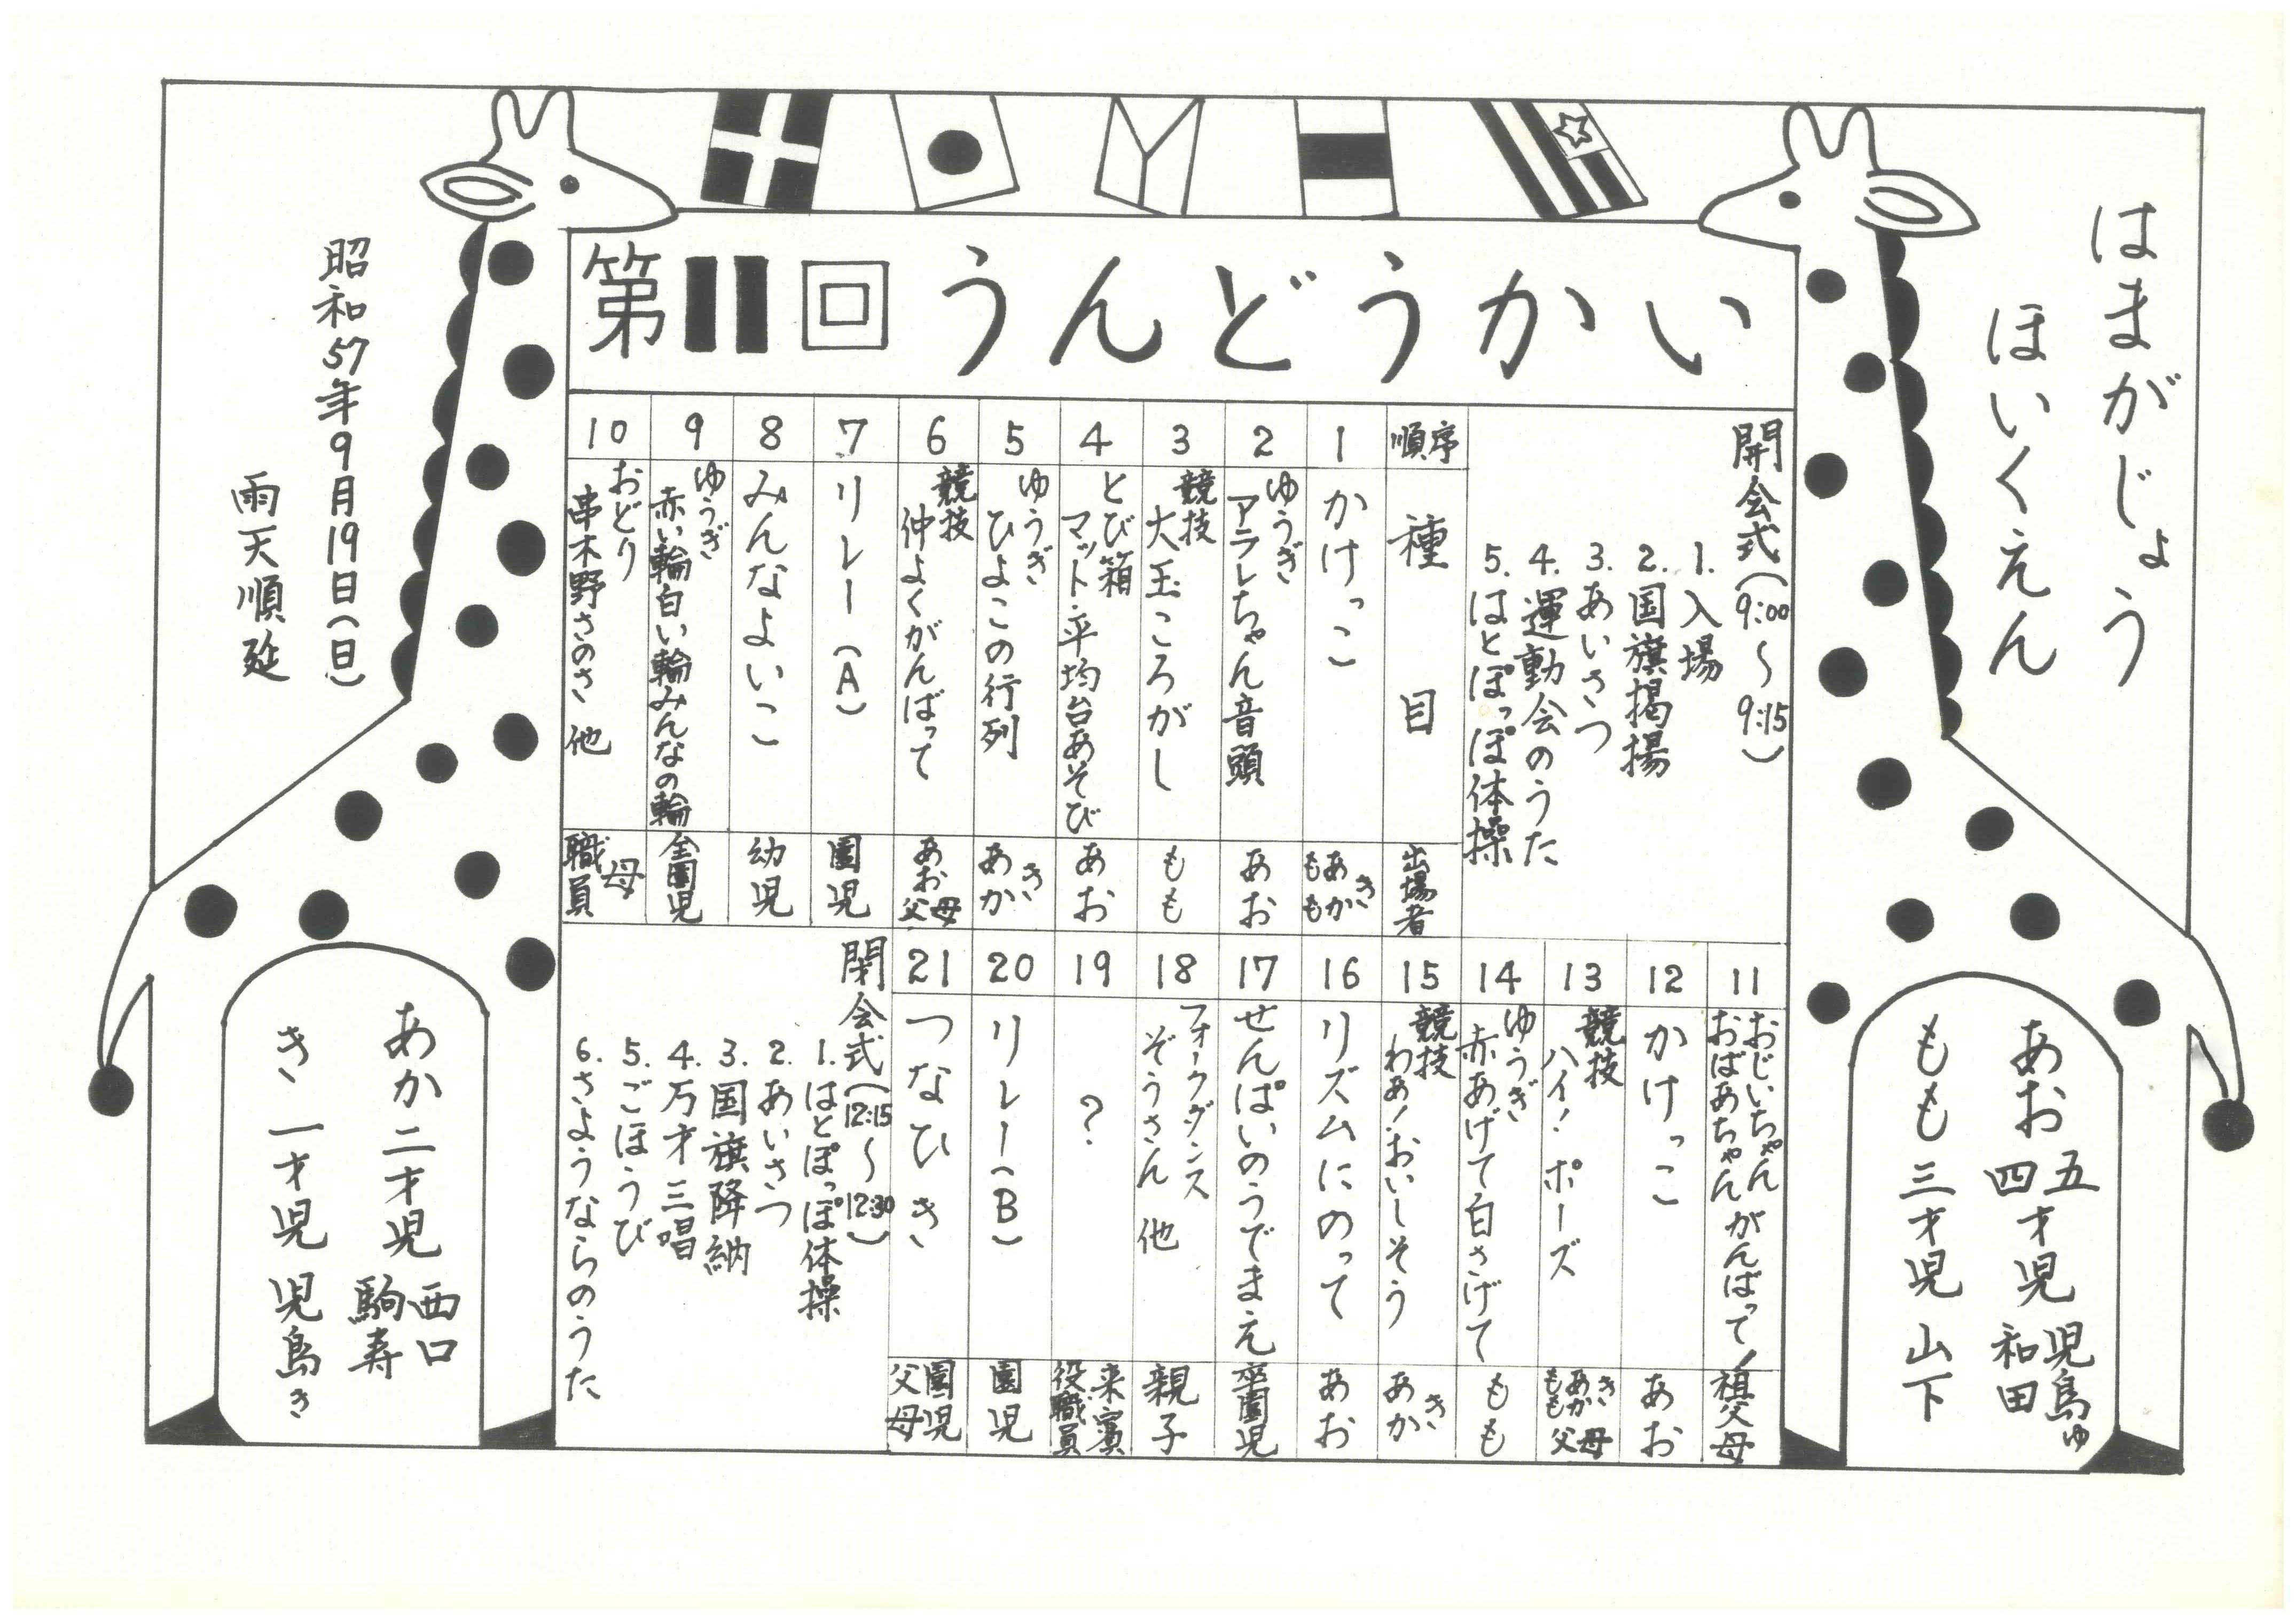 はまがじょう
ほいくえん
第11回うんどうかい
開会式(9:00〜9:15)
1. 入場
2. 国旗掲揚
3. あいさつ
4. 運動会のうた
5. はとぽっぽ体操
順序
種目
出場者
1
かけっこ
きあかもも
2
ゆうぎ
アラレちゃん音頭
あお
3
競技
大玉ころがし
もも
4
とび箱
マット平均台あそび
あお
5
ゆうぎ
ひよこの行列
きあか
6
競技
仲よくがんばって
あお父母
7
リレー(A)
園児
8
みんなよいこ
幼児
9
ゆうぎ
赤い輪白い輪みんなの輪
全園児
10
おどり
串木野さのさ 他
母
職員
11
おじいちゃん
おばあちゃんがんばって!
祖父母
12
かけっこ
あお
13
競技
ハイ!ポーズ
きあかもも父母
14
ゆうぎ
赤あげて白さげて
もも
15
競技
わあ!おいしそう
きあか
16
リズムにのって
あお
17
せんぱいのうでまえ
卒園児
18
フォークダンス
ぞうさん 他
親子
19
?
来賓
役職員
20
リレー(B)
園児
21
つなひき
園児
父母
閉会式(12:15〜12:30)
1. はとぽっぽ体操
2. あいさつ
3. 国旗降納
4. 万才三唱
5. ごほうび
6. さようならのうた
昭和57年9月19日(日)
雨天順延
あお 五四才児 児島ゆ 和田
もも 三才児 山下
あか 二才児 西口 駒寿
き 一才児 児島き